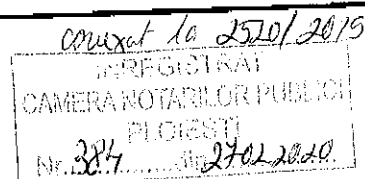 conexat la 2520/2019
INREGISTRAT
CAMERA NOTARILOR PUBLICI
PLOIESTI
Nr. 384 din 27.02.2020.